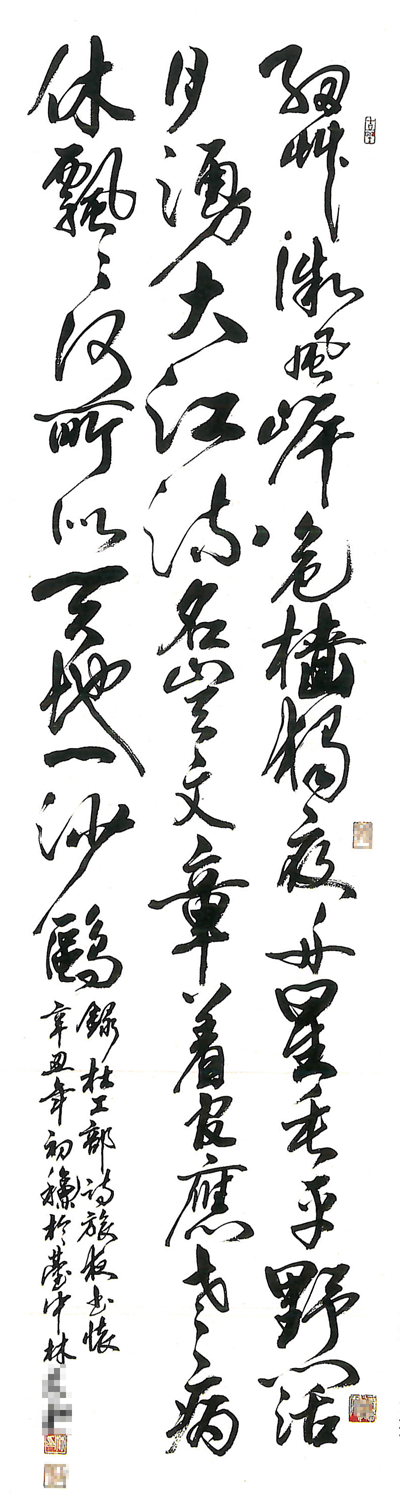 細草微風岸危檣獨夜舟星垂平野闊
月湧大江流名豈文章着官應老病
休飄〻何所似天地一沙鷗
錄杜工部詩旅夜書懷
辛丑年初穐於臺中林